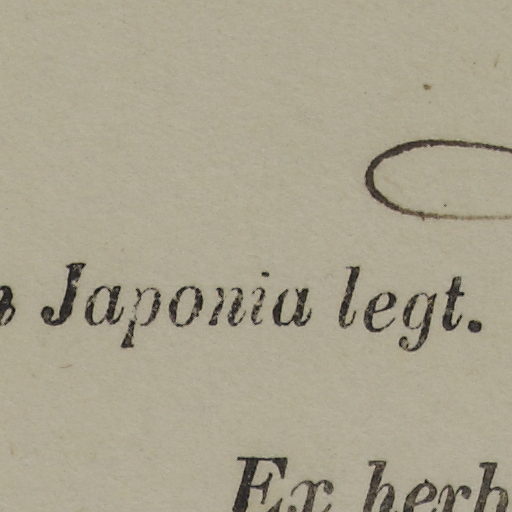 Japonia legt.
Ex herb